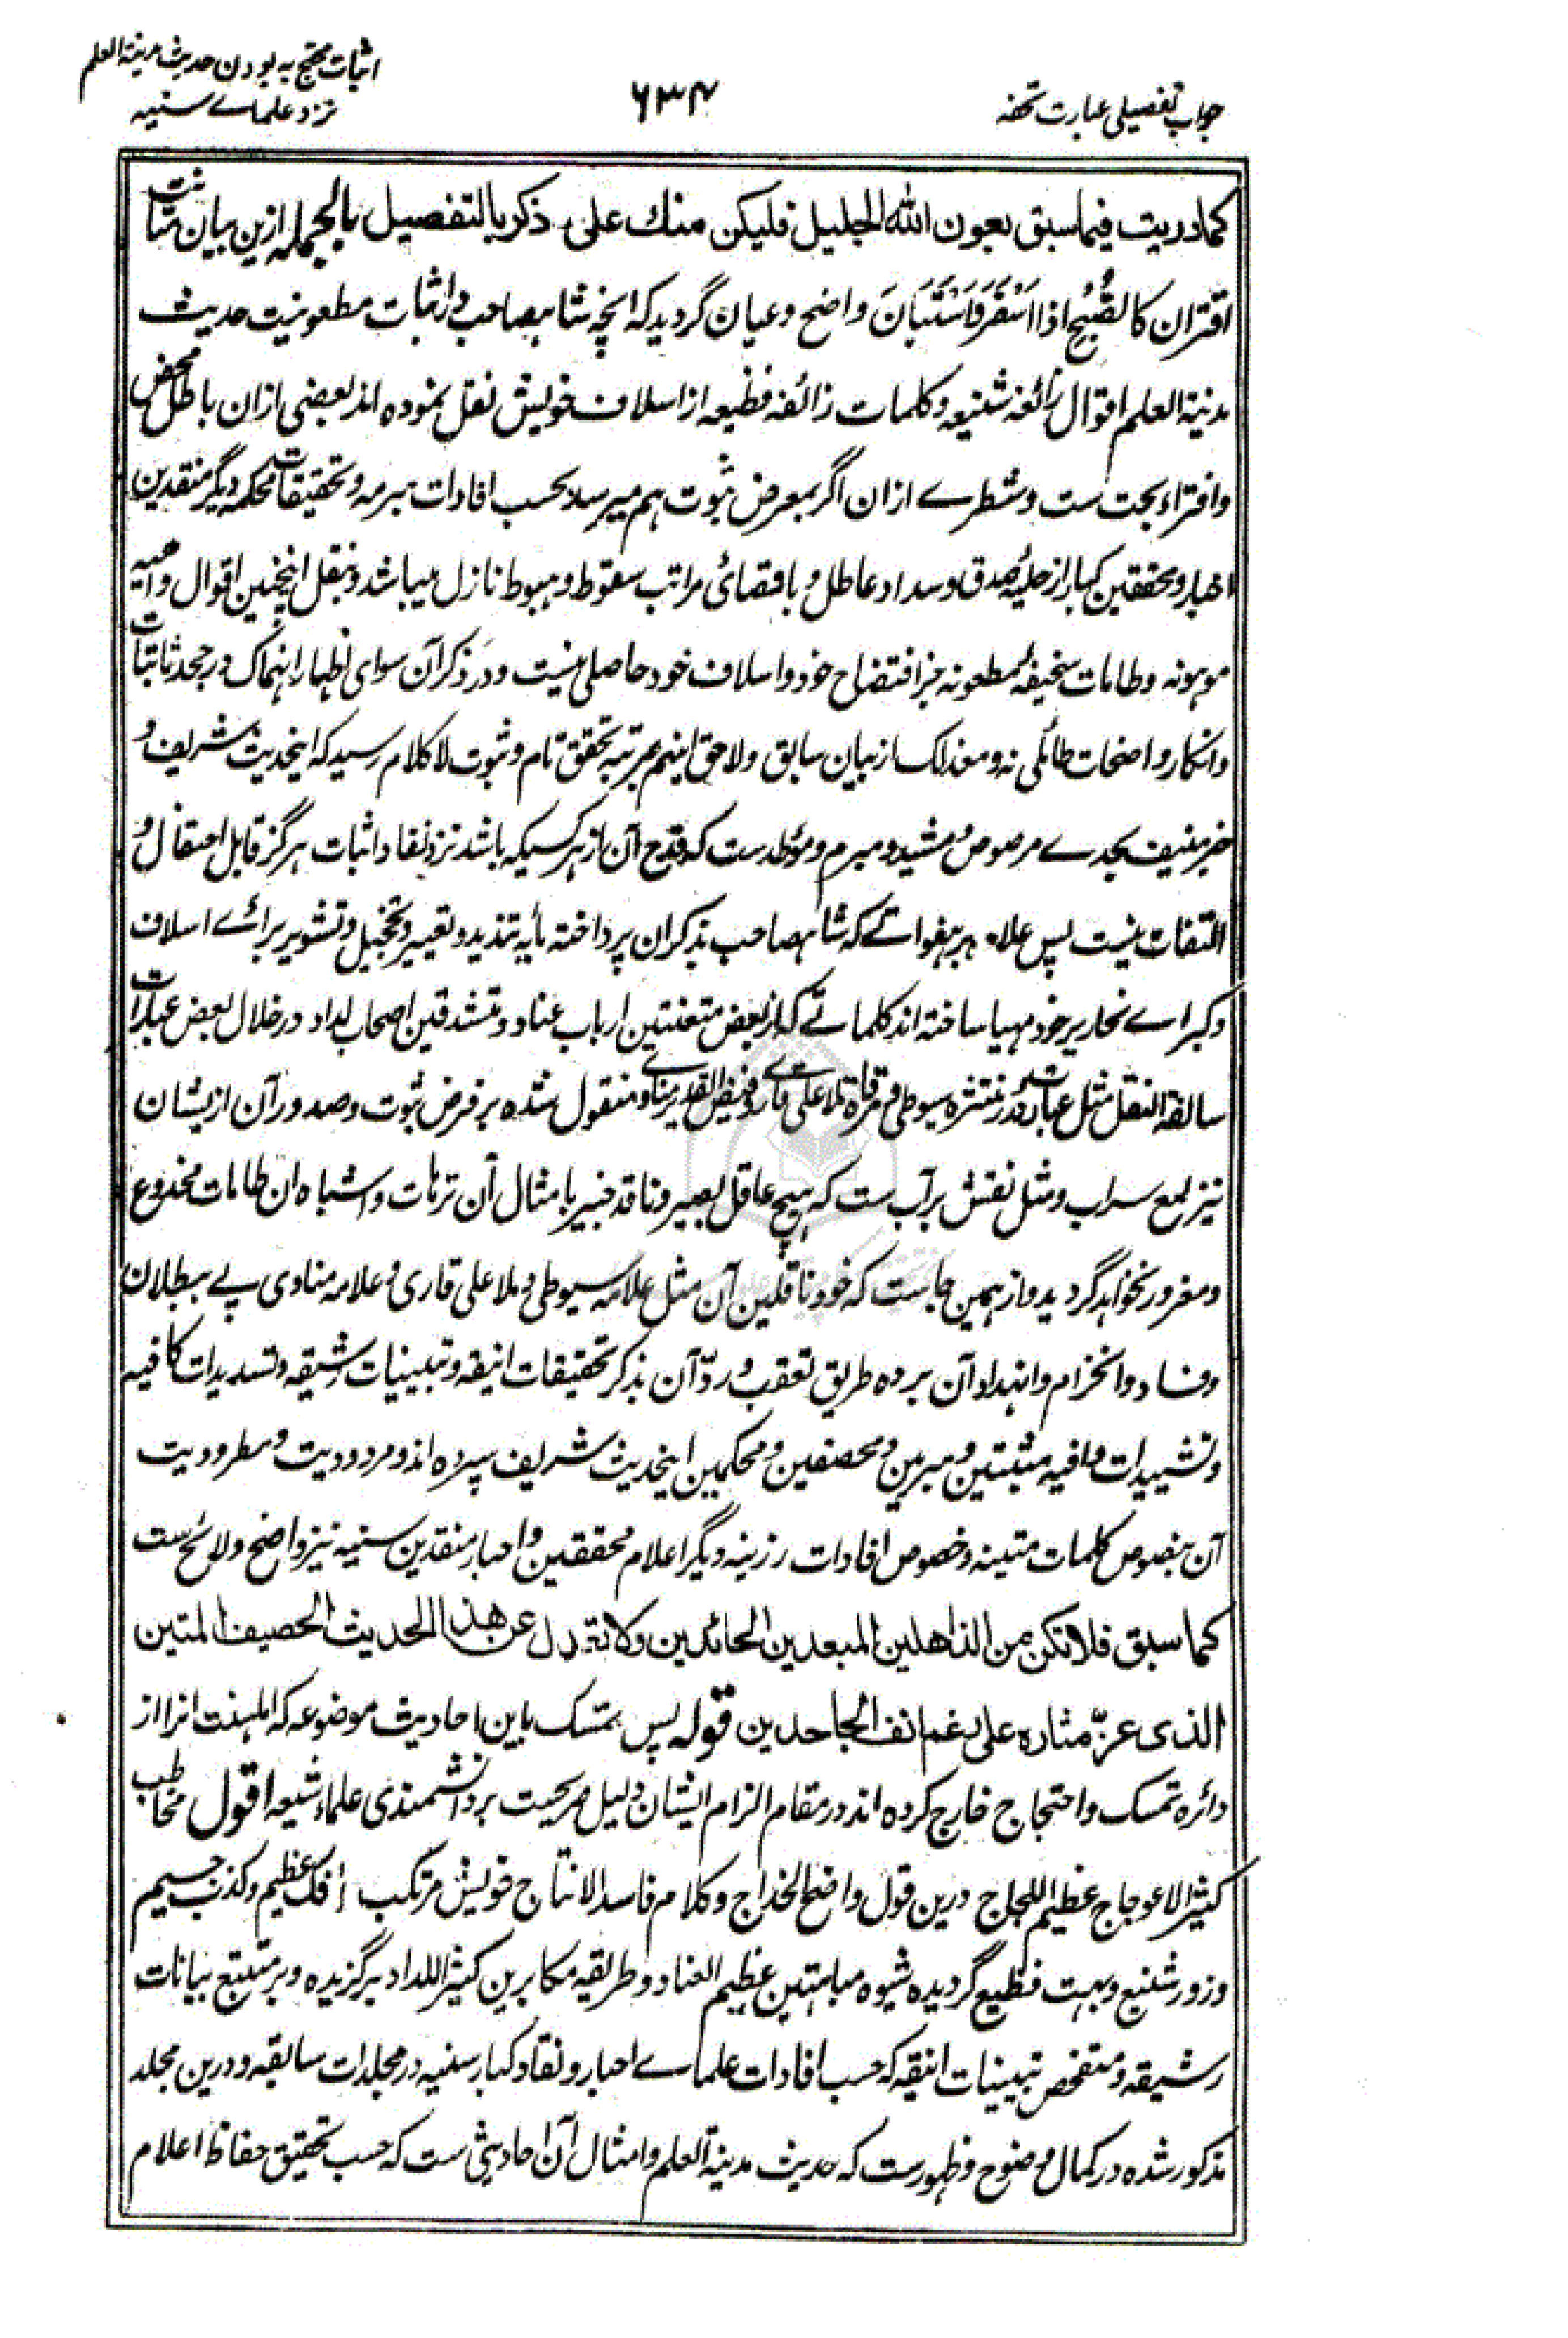 جواب تفصیلی عبارت تحفه
۶۳۴
اثبات محتج به بودن حدیث مدینة العلم
نزد علمای سنیه
کما دریت فیما سبق بعون الله الجلیل فلیکن منک علی ذکر بالتفصیل بالجمله ازین بیان متانت
اقتران کالصُّبْحِ اذا اَسْفَرَ وَاسْتَبَانَ واضح و عیان گردید که آنچه شاهصاحب در اثبات مطعونیت حدیث
مدینة العلم اقوال زائغه شنیعه و کلمات زائفه فظیعه از اسلاف خویش نقل نموده اند بعضی ازان باطل محض
و افتراء بحت ست و شطرے ازان اگر بمعرض ثبوت هم میرسد بحسب افادات مبرمه و تحقیقات محکمه دیگر منقدین
اخبار و محققین کبار از حلیهٔ صدق و سداد عاطل و باقصائی مراتب سقوط و هبوط نازل میباشد و بنقل اینچنین اقوال واهیه
موهونه و طامات سخیفهٔ مطعونه جز افتضاح خود و اسلاف خود حاصلی نیست و در ذکر آن سوای اظهار انهماک در جحد ثابتات
و انکار واضحات طائلی نه و معذلک از بیان سابق و لاحق اینهم بمرتبه تحقق تام و ثبوت لاکلام رسید که اینحدیث شریف و
خبر منیف بحدے مرصوص و مشید و مبرم و موطدست که قدح آن از هر کسیکه باشد نزد نقاد اثبات هرگز قابل احتفال و
التفات نیست پس علاوه بر هفواتے که شاهصاحب بذکر آن پرداخته مایه تندید و تعییر و تخجیل و تشویر برائے اسلاف
و کبراے نحاریر خود مهیا ساخته اند کلماتے که از بعض متعنتین ارباب عناد و متشدقین اصحاب لداد در خلال بعض عبارات
سالفة النقل مثل عبارت درر منتثره سیوطی و مرقاة ملا علی قاری و فیض القدیر مناوے منقول شده بر فرض ثبوت و صدور آن ازیشان
نیز لمع سراب و مثل نقش بر آب ست که هیچ عاقل بصیر و ناقد خبیر بامثال آن ترهات و اشباه ان طامات مخدوع
و مغرور نخواهد گردید و از همین جاست که خود ناقلین آن مثل علامه سیوطی و ملا علی قاری و علامه مناوی پے ببطلان
و فساد و انخرام و انهداد آن برده طریق تعقب و ردّ آن بذکر تحقیقات انیقه و تبیینات رشیقه و تسدیدات کافیه
و تشییدات وافیه مثبتین و مبرمین و محصفین و محکمین اینحدیث شریف سپرده اند و مردودیت و مطرودیت
آن بنصوص کلمات متینه و خصوص افادات رزینه دیگر اعلام محققین و احبار منقدین سنیه نیز واضح و لائح ست
کما سبق فلا تکن من الذاهلین المبعدین الحائدین و لا تعدل عن هذا الحدیث الحصیف المتین
الذی عزّ مثاره علی رغم انف الجاحدین قوله پس تمسک باین احادیث موضوعه که اهلسنت انرا از
دائره تمسک و احتجاج خارج کرده اند در مقام الزام ایشان دلیل صریحست بر دانشمندی علماء شیعه اقول مخاطب
کثیر الاعوجاج عظیم اللجاج درین قول واضح الخداج و کلام فاسد الانتاج خویش مرتکب افک عظیم و کذب جسیم
و زور شنیع و بهت فظیع گردیده شیوه مباهتین عظیم العناد و طریقه مکابرین کثیر اللداد برگزیده و بر متتبع بیانات
رشیقه و متفحص تبیینات انیقه که حسب افادات علماے احبار و نقاد کبار سنیه در مجلدات سابقه و درین مجلد
مذکور شده در کمال وضوح و ظهورست که حدیث مدینة العلم و امثال آن احادیثی ست که حسب تحقیق حفاظ اعلام